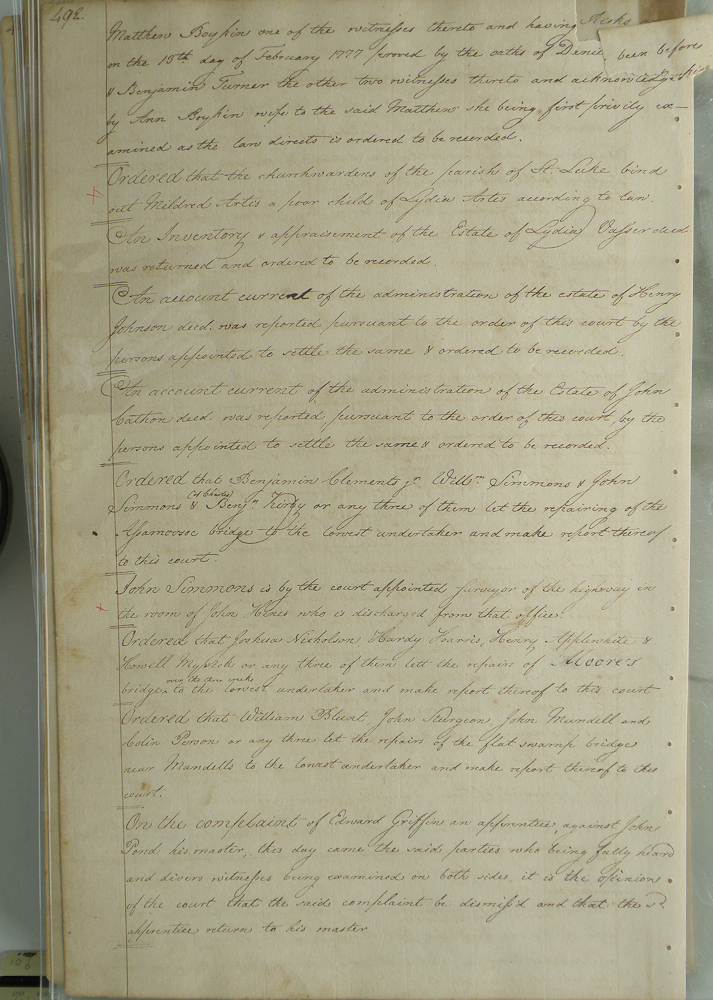 492.
Matthew Boykin one of the witnesses thereto and having
on the 13th day of February 1777 proved by the oaths of been before
& Benjamin Turner the other two witnesses thereto and acknowledged
by Ann Boykin wife to the said Matthew she being first privily ex–
amined as the law directs is ordered to be recorded.
Ordered that the churchwardens of the parish of St. Luke bind
out Mildred Artis a poor child of Lydia Artis according to law.
An Inventory & appraisement of the Estate of Lydia Vasser decd
was returned and ordered to be recorded.
An account current of the administration of the estate of Henry
Johnson decd. was reported pursuant to the order of this court by the
persons appointed to settle the same & ordered to be recorded.
An account current of the administration of the Estate of John
Cathon decd. was reported, pursuant to the order of this court, by the
persons appointed to settle the same & ordered to be recorded.
Ordered that Benjamin Clements jr. Willm. Simmons & John
Simmons (of Charles) & Benjn. Kirby or any three of them let the repairing of the
Assamoosoc bridge to the lowest undertaker and make report thereof
to this court.
John Simmons is by the court appointed surveyor of the highway in
the room of John Hines who is discharged from that office.
Ordered that Joshua Nicholson, Hardy Harris, Henry Applewhite &
Howell or any three of them lett the repairs of Moores
bridge to the lowest undertaker and make report thereof to this court
Ordered that William Blunt, John Sturgeon, John Mundell and
Colin Person or any three let the repairs of the flat swamp bridge
near Mundells to the lowest undertaker and make report thereof to this
court.
On the complaint of Edward Griffin an apprentice, against John
Pond his master, this day came the said parties who being fully heard
and divers witnesses being examined on both sides, it is the opinion
of the court that the said complaint be dismiss'd and that the sd.
apprentice return to his master